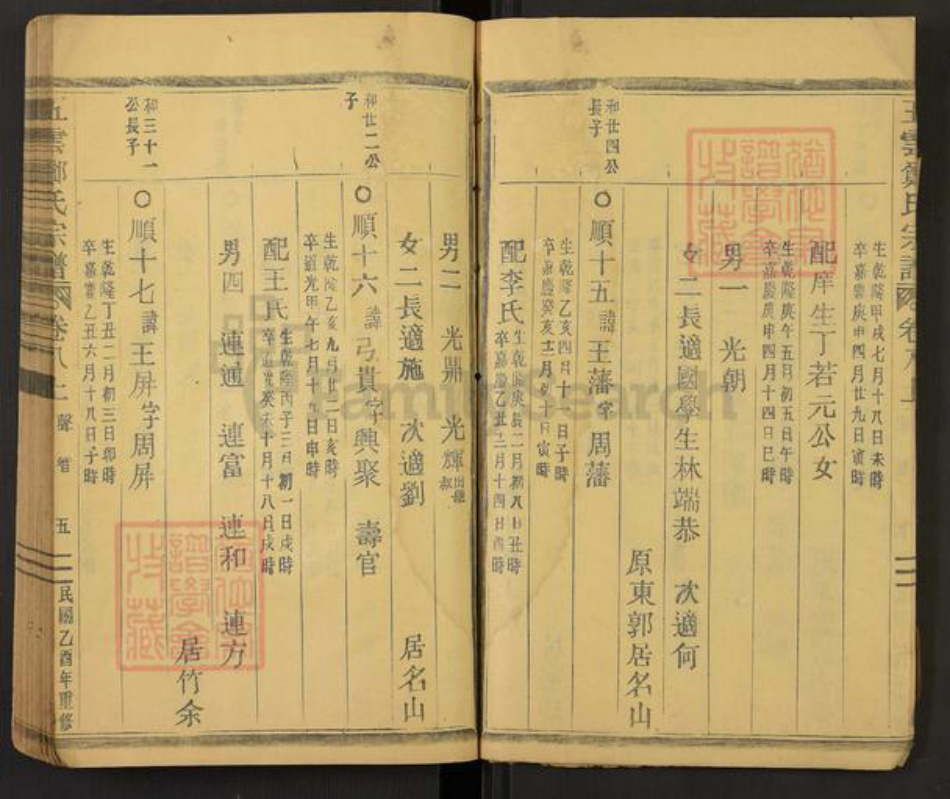 生乾隆甲戌七月十八日未時
卒嘉慶庚申四月廿九日寅時
配庠生丁若元公女
生乾隆庚午五月初五日午時
卒嘉慶庚申四月十四日巳時
男一 光朝
女二長適國學生林端恭 次適何
原東郭居名山
和廿四公
長子
○順十五諱王藩字周藩
生乾隆乙亥四月十日子時
卒嘉慶癸亥十二月初十日寅時
配李氏
生乾隆庚辰二月初八日丑時
卒嘉慶乙丑十二月十四日酉時
男二 光鼎 光輝出繼叔
女二長適施 次適劉 居名山
和廿二公
子
○順十六諱弓貴字興聚 壽官
生乾隆乙亥九月廿二日亥時
卒道光甲午七月十九日申時
配王氏
生乾隆丙子三月初一日戌時
卒道光癸未十月十八日戌時
男四 連通 連富 連和 連方
居竹余
和三十一
公長子
○順十七諱王屏字周屏
生乾隆丁丑十二月初三日卯時
卒嘉慶乙丑六月十八日子時
五雲鄭氏宗譜 卷八上 聲 五 民國乙酉年重修
五雲鄭氏宗譜 卷八上
FamilySearch